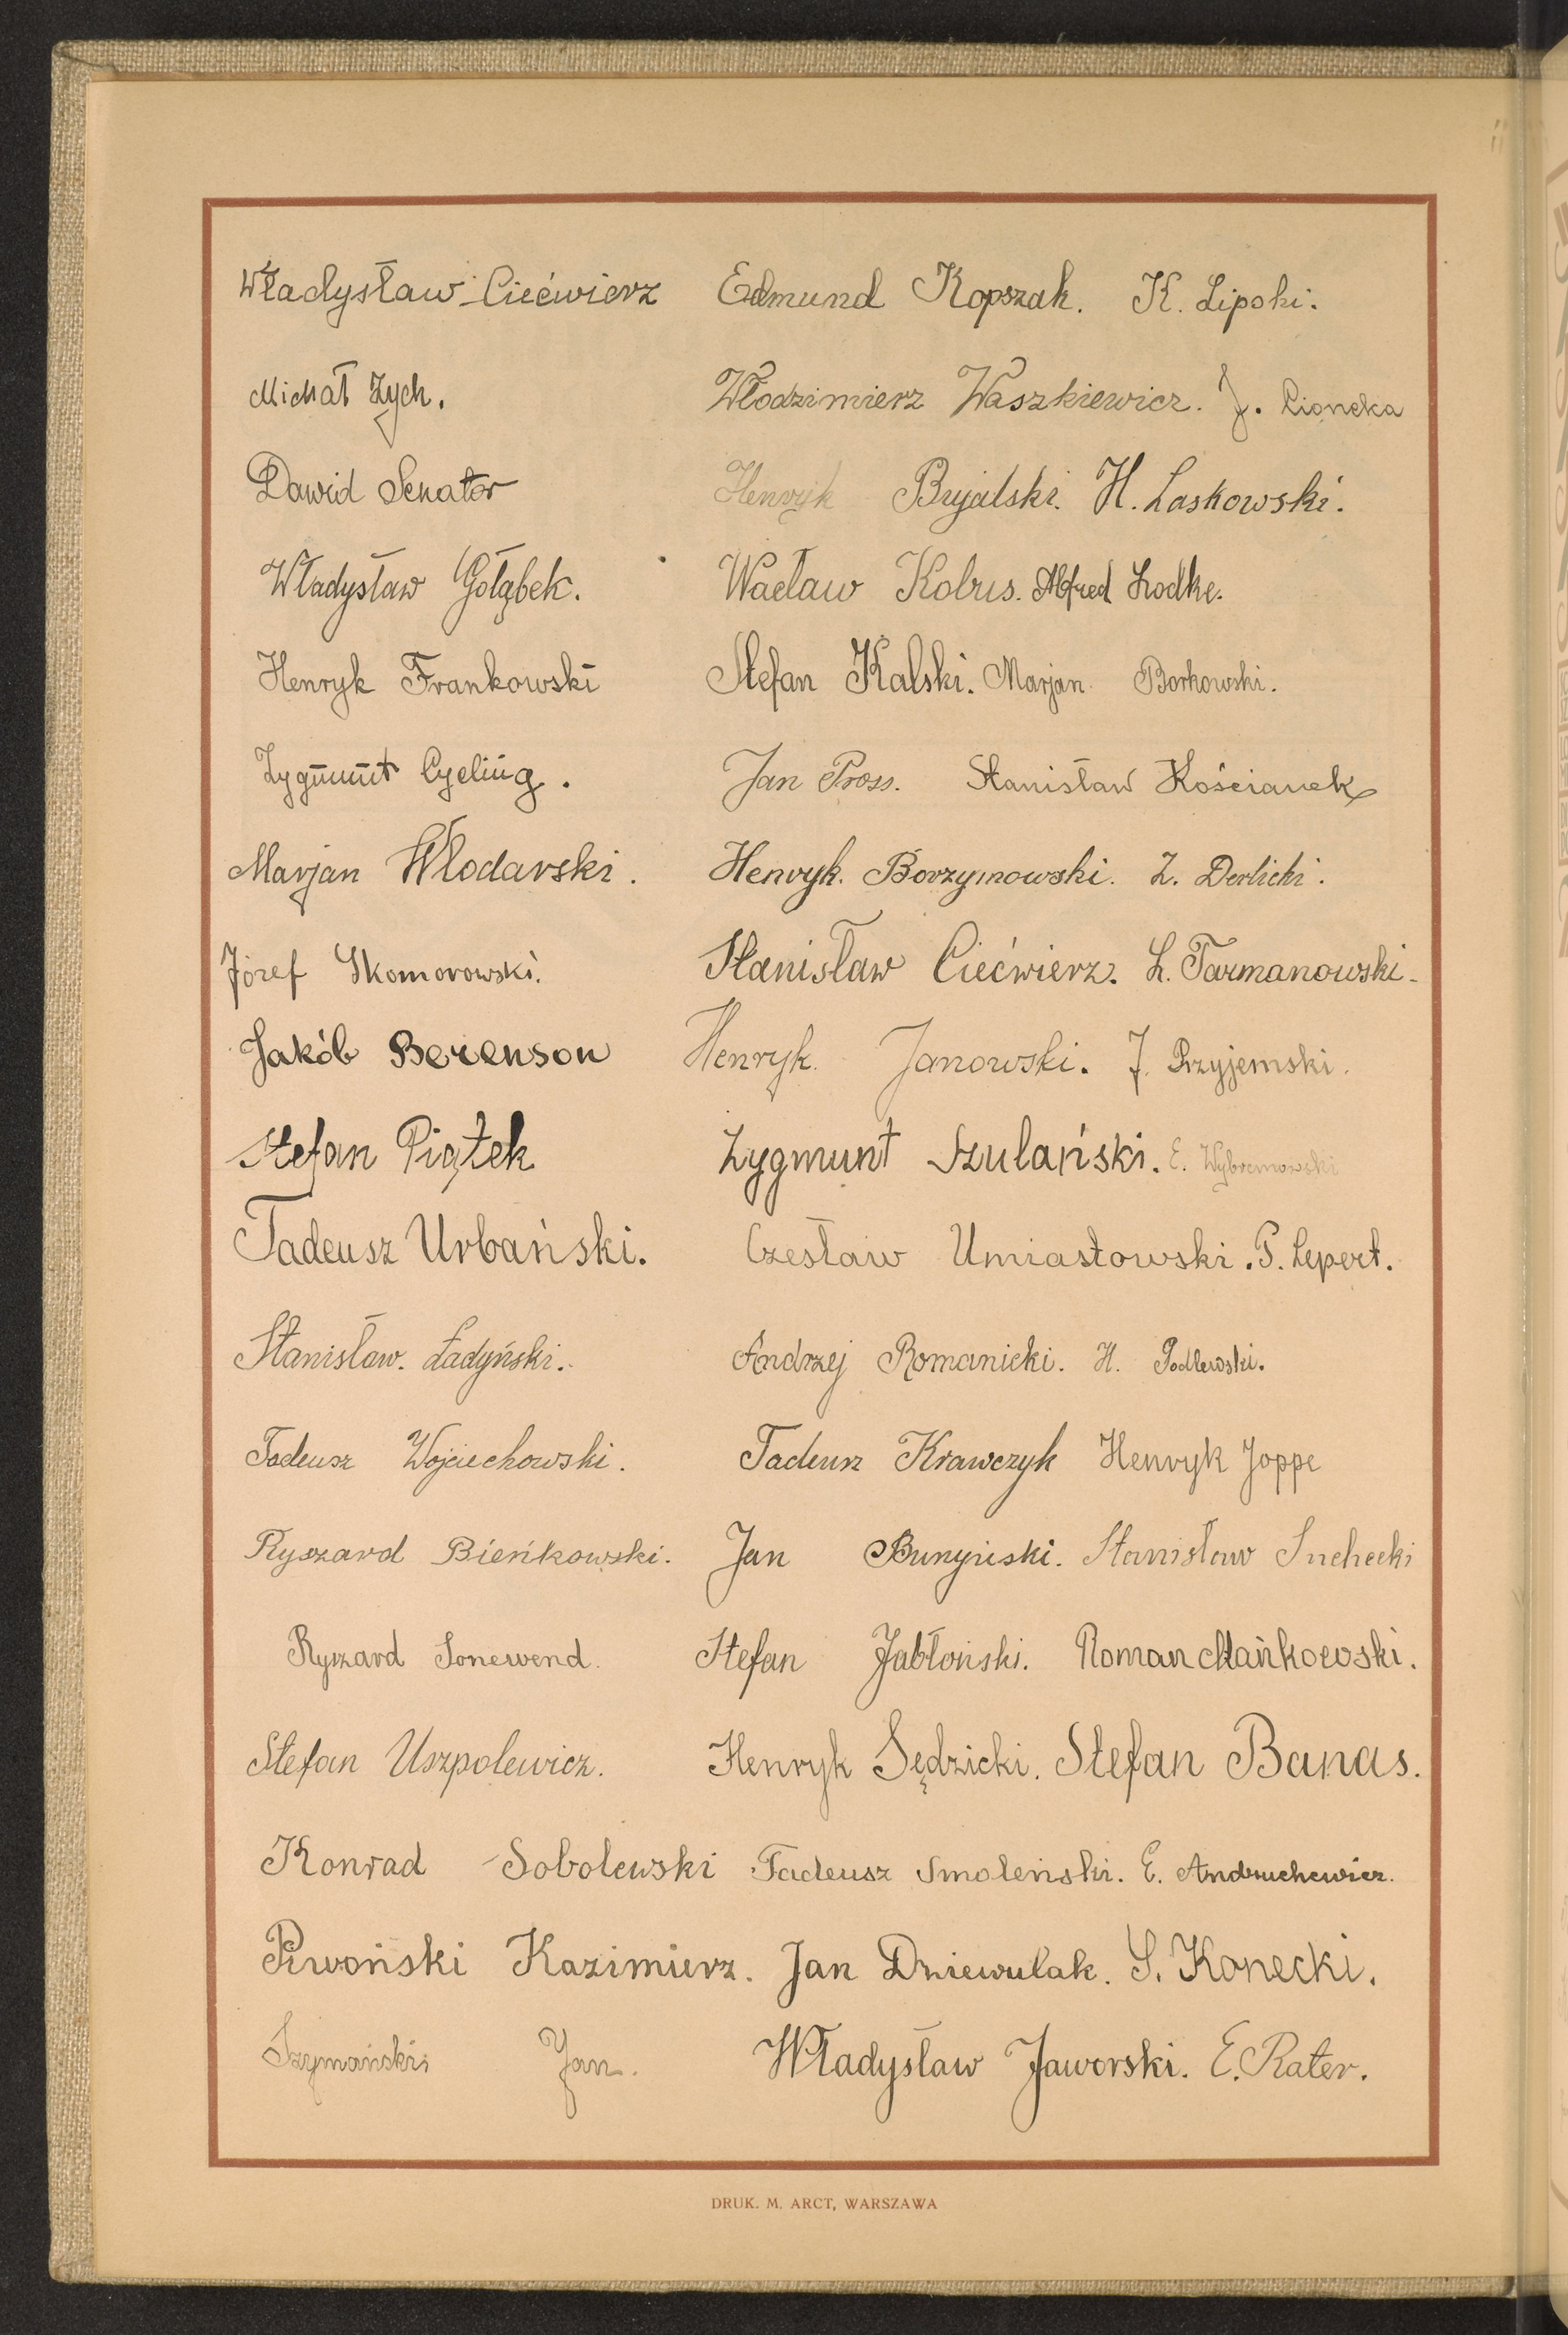 Władysław Ciećwierz Edmund Kopszak. K. Lipski.
Michał Zych. Włodzimierz Waszkiewicz. J. Cioncka
Dawid Senator Henryk Bujalski. H. Laskowski.
Władysław Gołąbek. Wacław Kobus. Alfred Lodke.
Henryk Frankowski Stefan Kalski. Marjan Borkowski.
Zygmunt Cyeling. Jan Pross. Stanisław Kościanek
Marjan Włodarski. Henryk. Borzymowski. Z. Derlicki.
Józef Skomorowski. Stanisław Ciećwierz. L. Tarmanowski.
Jakób Berenson Henryk. Janowski. J. Przyjemski.
Stefan Piątek Zygmunt Szulański. E. Wybremowski
Tadeusz Urbański. Czesław Umiastowski. P. Lepert.
Stanisław. Ładyński. Andrzej Romanicki. H. Podlewski.
Tadeusz Wojciechowski. Tadeusz Krawczyk Henryk Joppe
Ryszard Bieńkowski. Jan Bunyiski. Stanisław Suchecki
Ryszard Sonewend. Stefan Jabłoński. Roman Mańkowski.
Stefan Uszpolewicz. Henryk Sędzicki. Stefan Banas.
Konrad Sobolewski Tadeusz Smoleński. E. Andruchewicz.
Piwoński Kazimierz. Jan Dziewulak. S. Konecki.
Szymański Jan. Władysław Jaworski. E. Rater.
DRUK. M. ARCT, WARSZAWA